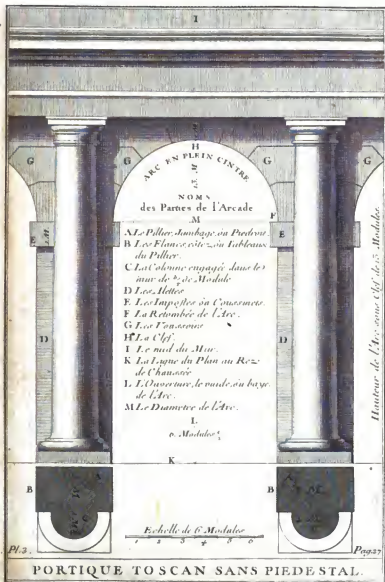 I
H
G
G
G
G
ARC EN PLEIN CINTRE
NOMS
des Parties de l'Arcade
M
F
E
E
A Le Pillier, Jambage, ou Piedroit.
B Les Flancs, côtez, ou Tableaux
du Pillier.
C La Colonne engagée dans le
mur de
de Module
D Les Alettes
E Les Impostes ou Coussinets.
F La Retombée de l'Arc.
G Les Voussoirs
H La Clef.
I Le nud du Mur.
K La Ligne du Plan au Rez
de Chaussée
L L'Ouverture, le vuide, ou baye
de l'Arc.
M Le Diametre de l'Arc.
D
D
L
Modules
K
B
B
Echelle de 6 Modules
1 2 3 4 5 6
Hauteur de l'Arc sous Clef, de 13 Modules.
Pl. 2.
Pag. 27
PORTIQUE TOSCAN SANS PIEDESTAL.